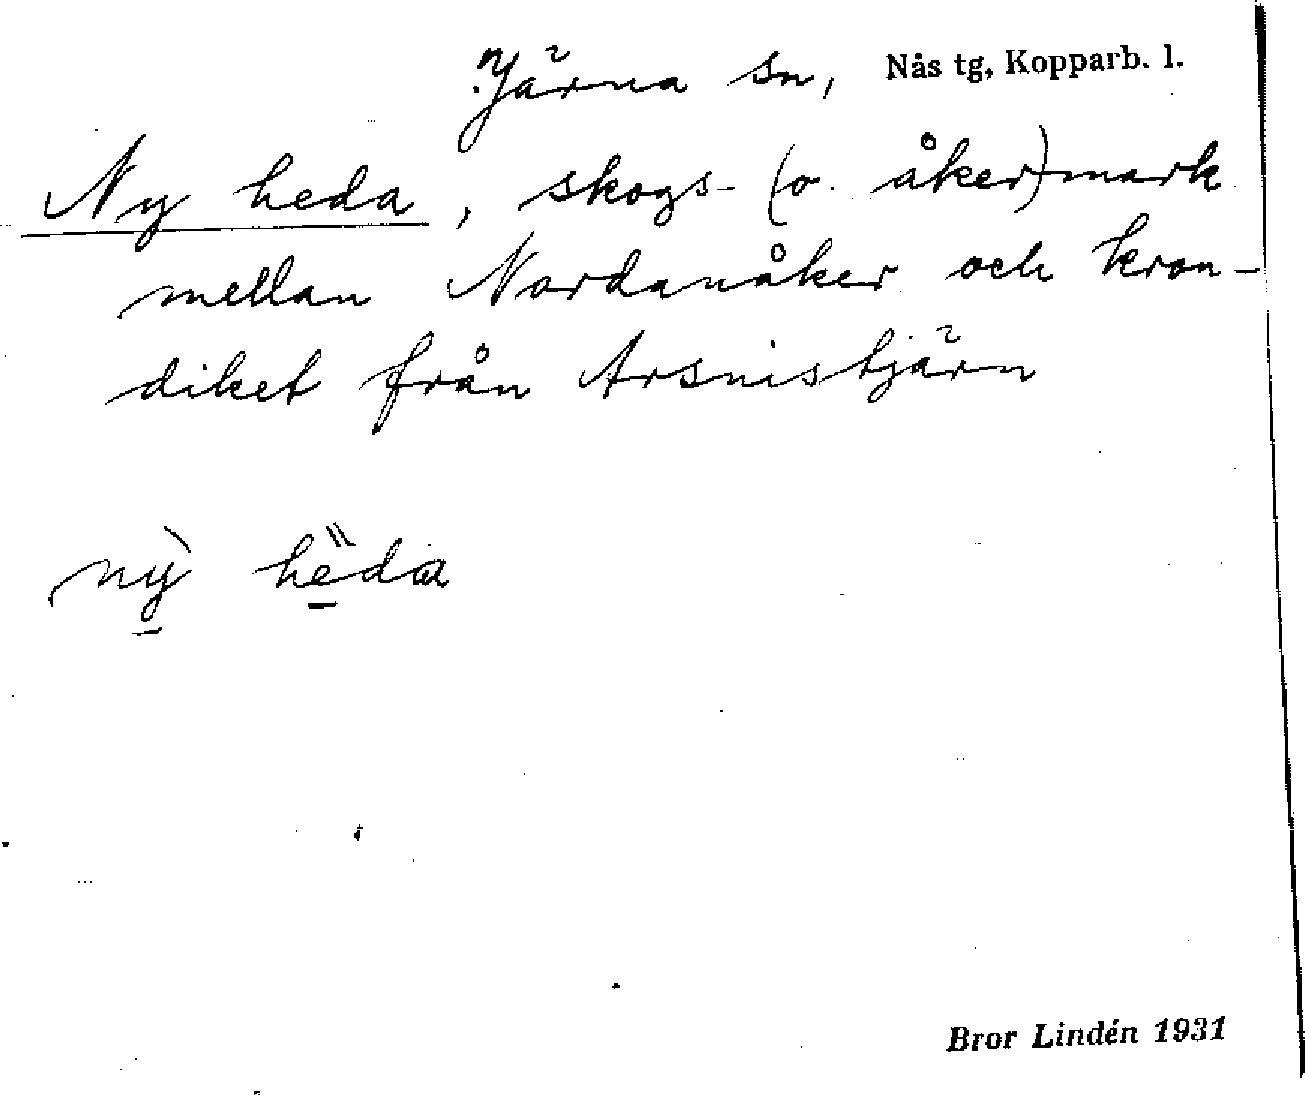 Järna sn, Nås tg, Kopparb. l.
Ny heda, skogs- (o. åker)mark
mellan Nordanåker och kron-
diket från Arsnistjärn
nỳ hȅda
Bror Lindén 1931